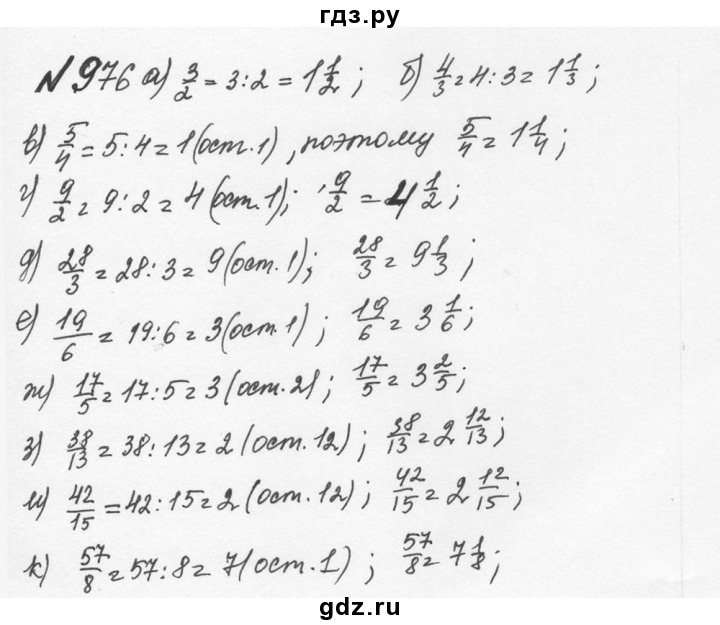 гдз.ру
№976 а) 3/2 = 3:2 = 1 1/2; б) 4/3 = 4:3 = 1 1/3;
в) 5/4 = 5:4 = 1 (ост.1), поэтому 5/4 = 1 1/4;
г) 9/2 = 9:2 = 4 (ост.1); 9/2 = 4 1/2;
д) 28/3 = 28:3 = 9 (ост.1); 28/3 = 9 1/3;
е) 19/6 = 19:6 = 3 (ост.1); 19/6 = 3 1/6;
ж) 17/5 = 17:5 = 3 (ост.2); 17/5 = 3 2/5;
з) 38/13 = 38:13 = 2 (ост.12); 38/13 = 2 12/13;
и) 42/15 = 42:15 = 2 (ост.12); 42/15 = 2 12/15;
к) 57/8 = 57:8 = 7 (ост.1); 57/8 = 7 1/8;
gdz.ru